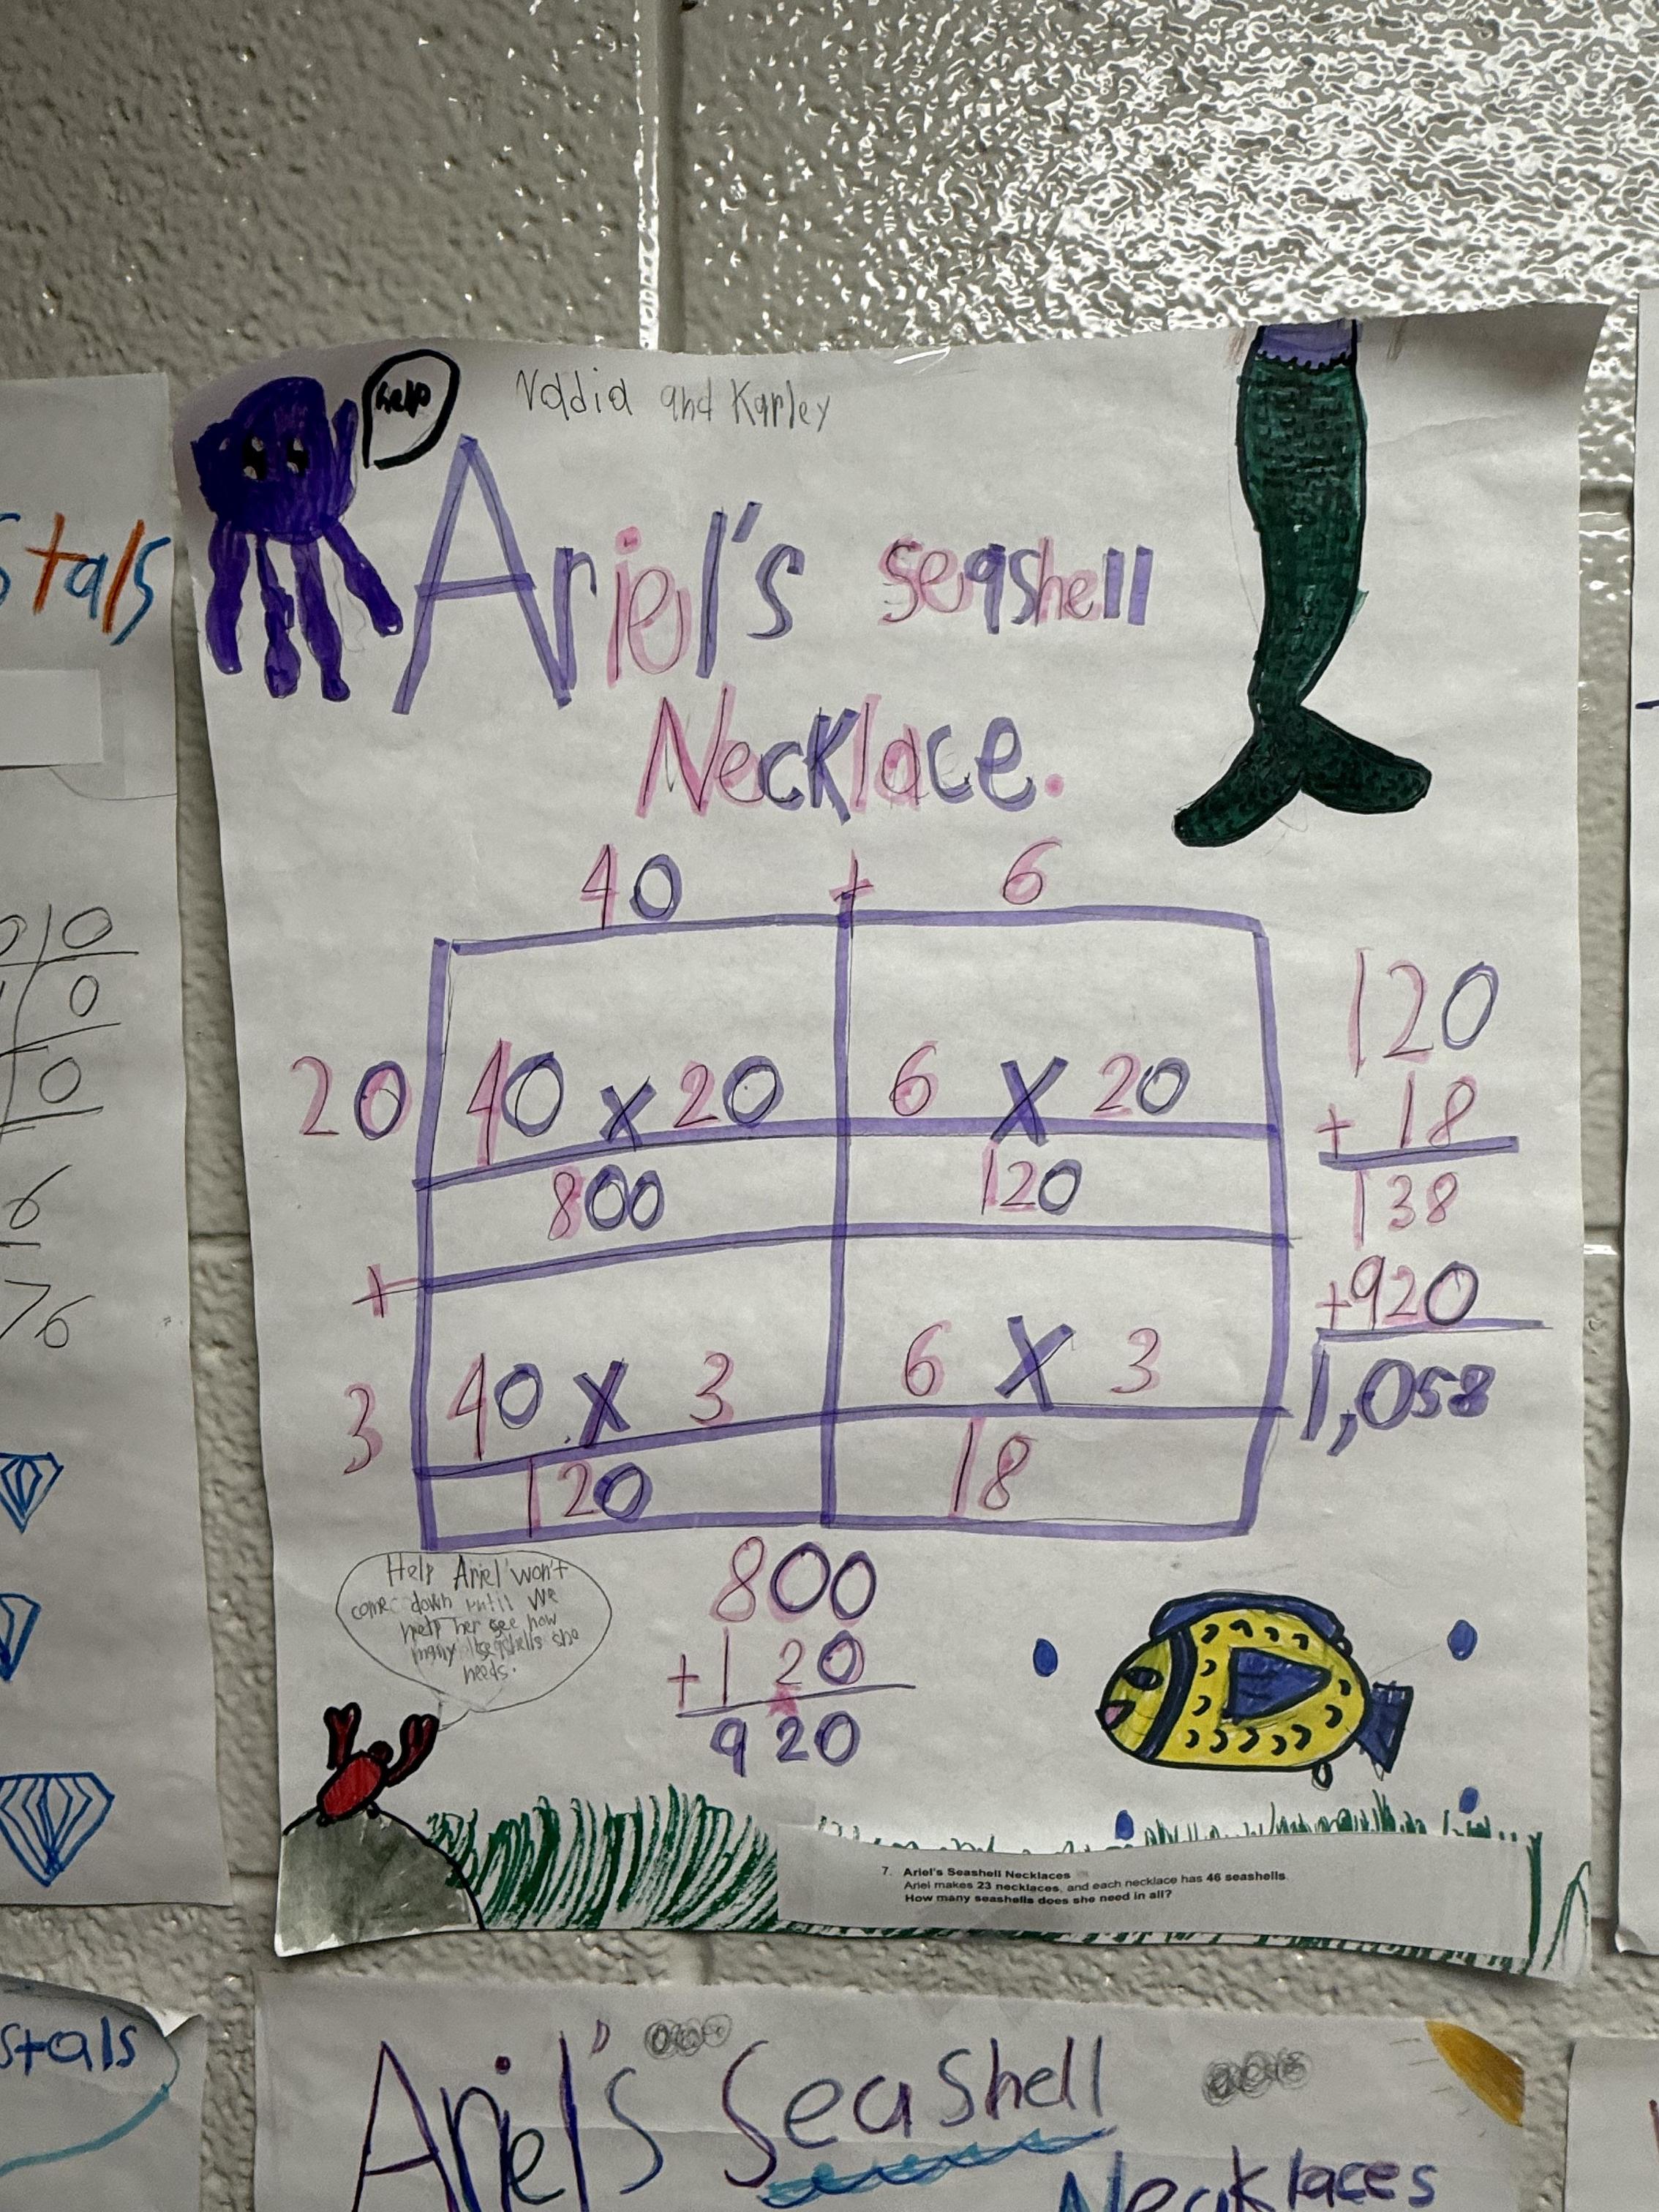 help
Naddia and Karley
Ariel's seashell
Necklace.
40 + 6
20
40 x 20
6 x 20
800
120
+
3
40 x 3
6 x 3
120
18
120
+ 18
138
+920
1,058
800
+120
920
Help Ariel won't
come down until we
help her see how
many seashells she
needs.
7. Ariel's Seashell Necklaces
Ariel makes 23 necklaces, and each necklace has 46 seashells.
How many seashells does she need in all?
stals
0
0
0
6
76
stals
Ariel's Seashell
Necklaces